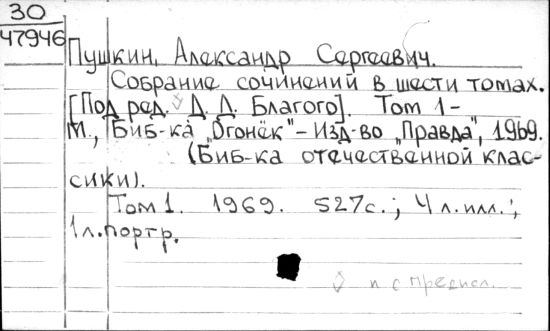 30
47946
Пушкин, Александр Сергеевич.
Собрание сочинений в шести томах.
[Под ред. Д. Д. Благого]. Том 1-
М., Биб-ка "Огонёк" - Изд-во "Правда", 1969.
(Биб-ка отечественной клас-
сики).
Том 1. 1969. 527с.; 4 л.илл.;
1л.портр.
и с предисл.